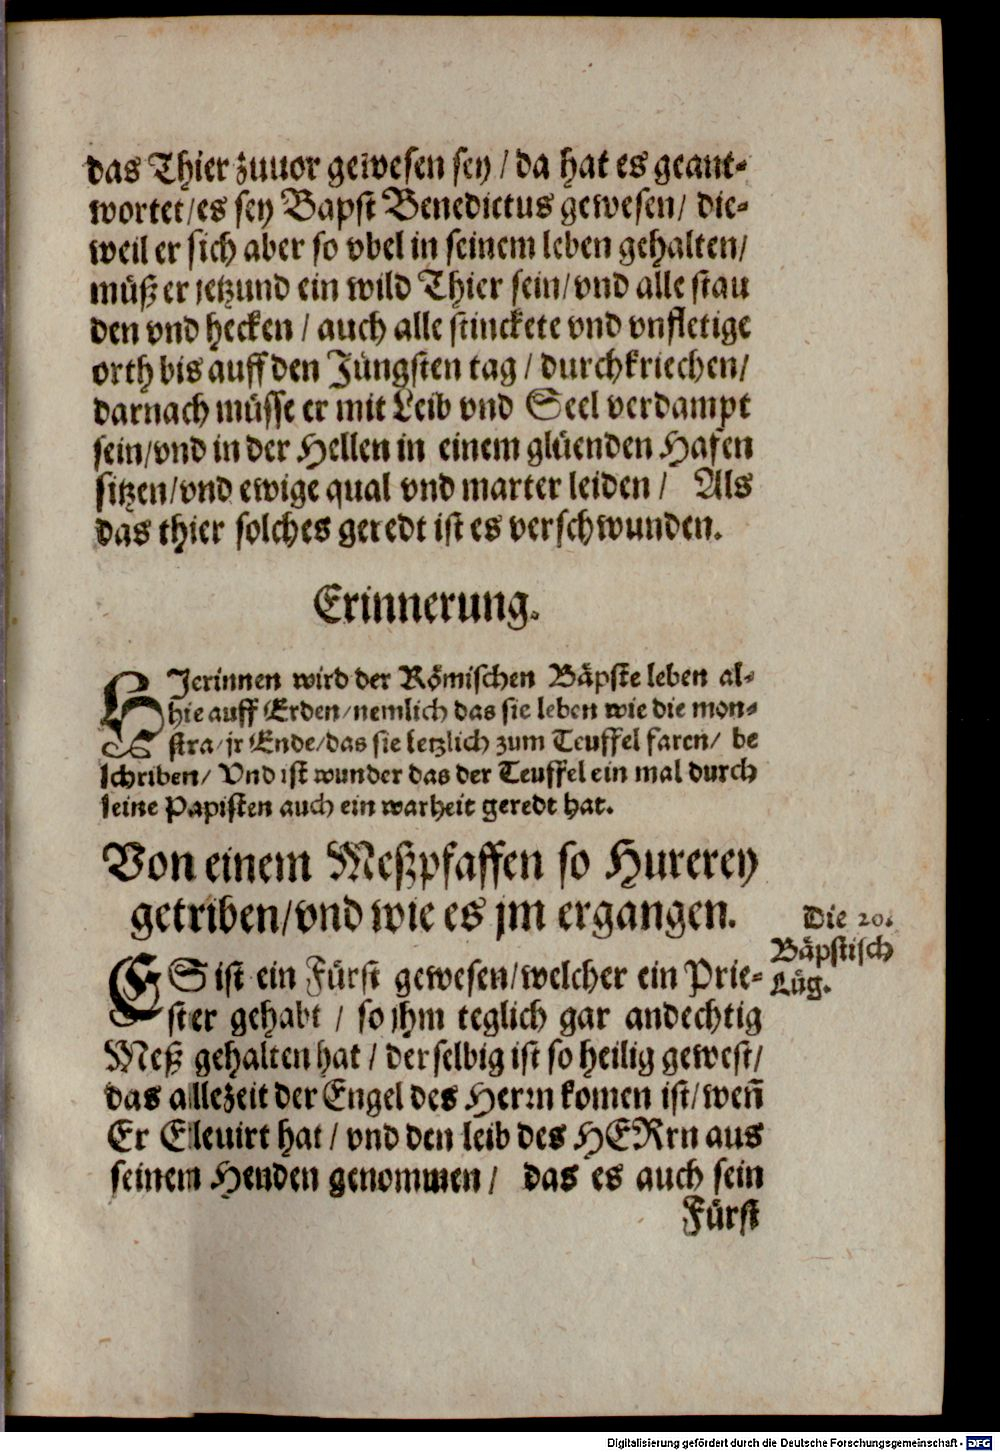 das Thier zuuor gewesen sey / da hat es geant-
wortet/es sey Bapst Benedictus gewesen/ die-
weil er sich aber so vbel in seinem leben gehalten/
müß er jetzund ein wild Thier sein/vnd alle stau
den vnd hecken / auch alle stinckete vnd vnfletige
orth bis auff den Jüngsten tag / durchkriechen/
darnach müsse er mit Leib vnd Seel verdampt
sein/vnd in der Hellen in einem glüenden Hafen
sitzen/vnd ewige qual vnd marter leiden / Als
das thier solches geredt ist es verschwunden.
Erinnerung.
HJerinnen wird der Römischen Bäpste leben al-
hie auff Erden/nemlich das sie leben wie die mon-
stra/jr Ende/das sie letzlich zum Teuffel faren/ be
schriben/ Vnd ist wunder das der Teuffel ein mal durch
seine Papisten auch ein warheit geredt hat.
Von einem Meßpfaffen so Hurerey
getriben/vnd wie es jm ergangen.
Die 20.
Bäpstisch
Lüg.
ES ist ein Fürst gewesen/welcher ein Prie-
ster gehabt / so jhm teglich gar andechtig
Meß gehalten hat / derselbig ist so heilig gewest/
das allezeit der Engel des Herrn komen ist/weñ
Er Eleuirt hat / vnd den leib des HERrn aus
seinem Henden genommen / das es auch sein
Fürst
Digitalisierung gefördert durch die Deutsche Forschungsgemeinschaft - DFG